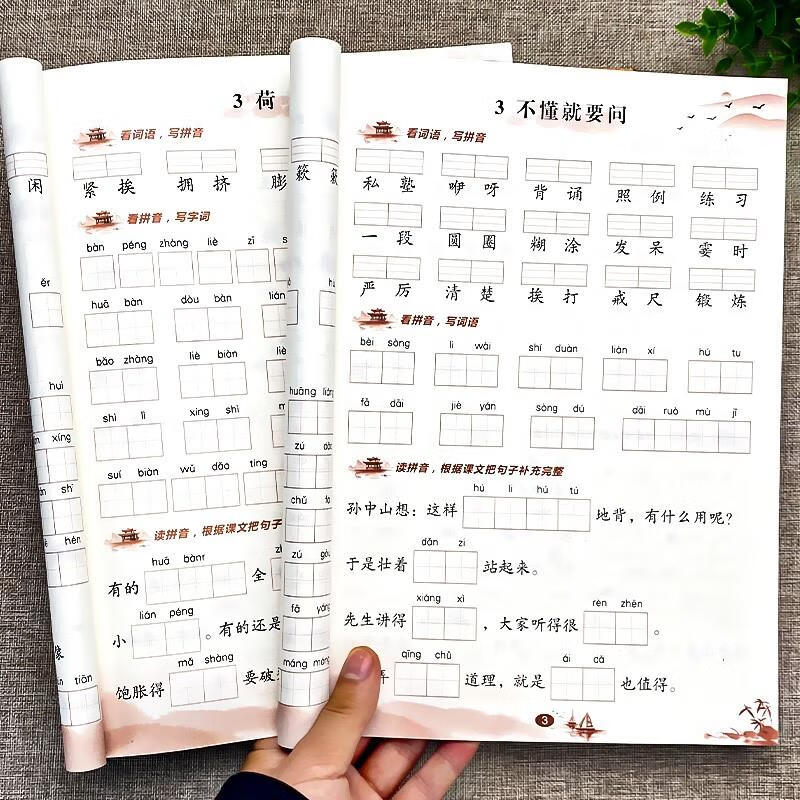 闲
ér
huì
xíng
shī
hén
tiān
3 荷
看词语，写拼音
紧 挨 拥 挤 膨
看拼音，写字词
bàn péng zhàng liè zī
huā bàn dòu bàn lián
bǎo zhàng liè biàn
shì lì xíng shī
suí biàn wǔ dǎo tíng
读拼音，根据课文把句子
huā bànr
有的 全
lián péng
小 。有的还是
mǎ shàng
饱胀得 要破
簌 簌
3 不懂就要问
看词语，写拼音
私 塾 咿 呀 背 诵 照 例 练 习
一 段 圆 圈 糊 涂 发 呆 霎 时
严 厉 清 楚 挨 打 戒 尺 锻 炼
看拼音，写词语
bèi sòng lì wài shí duàn liàn xí hú tu
fā dāi jiè yán sòng dú dāi ruò mù jī
读拼音，根据课文把句子补充完整
hú li hú tú
孙中山想：这样 地背，有什么用呢？
dǎn zi
于是壮着 站起来。
xiáng xì rèn zhēn
先生讲得 ，大家听得很 。
qīng chǔ ái cā
弄 道理，就是 也值得。
3